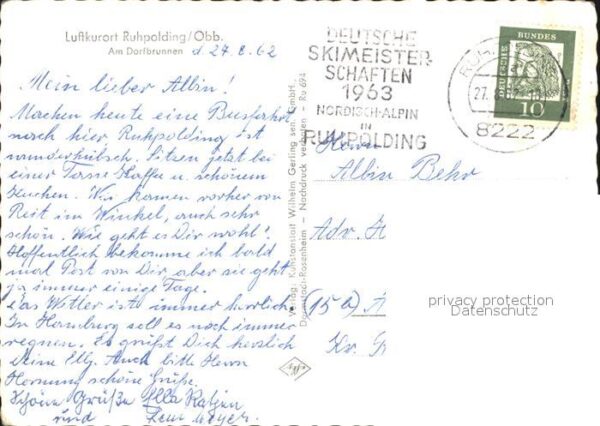 Luftkurort Ruhpolding/Obb.
Am Dorfbrunnen
d. 27. 8. 62
Mein lieber Albin!
Machen heute eine Busfahrt
nach hier Ruhpolding ist
wunderhübsch. Sitzen jetzt bei
einer Tasse Kaffee u. schönem
Kuchen. Wir kamen vorher von
Reit im Winkel, auch sehr
schön. Wie geht es Dir wohl?
Hoffentlich bekomme ich bald
mal Post von Dir, aber sie geht
ja immer einige Tage.
Das Wetter ist immer herrlich
In Hamburg soll es noch immer
regnen. Es grüßt Dich herzlich
Deine Elly. Auch bitte Herrn
Hornung schöne Grüße.
Schöne Grüße Ella Ratjen
und Meyer.
Verlag: Kunstanstalt Wilhelm Gerling sen. GmbH.,
Darmstadt-Rosenheim - Nachdruck verboten - Ro 694
DEUTSCHE
SKIMEISTER-
SCHAFTEN
1963
NORDISCH-ALPIN
IN
RUHPOLDING
8222
DEUTSCHE BUNDESPOST
10
Herrn
Albin Behr
Adv. H
(15a) A
Kr. G
privacy protection
Datenschutz